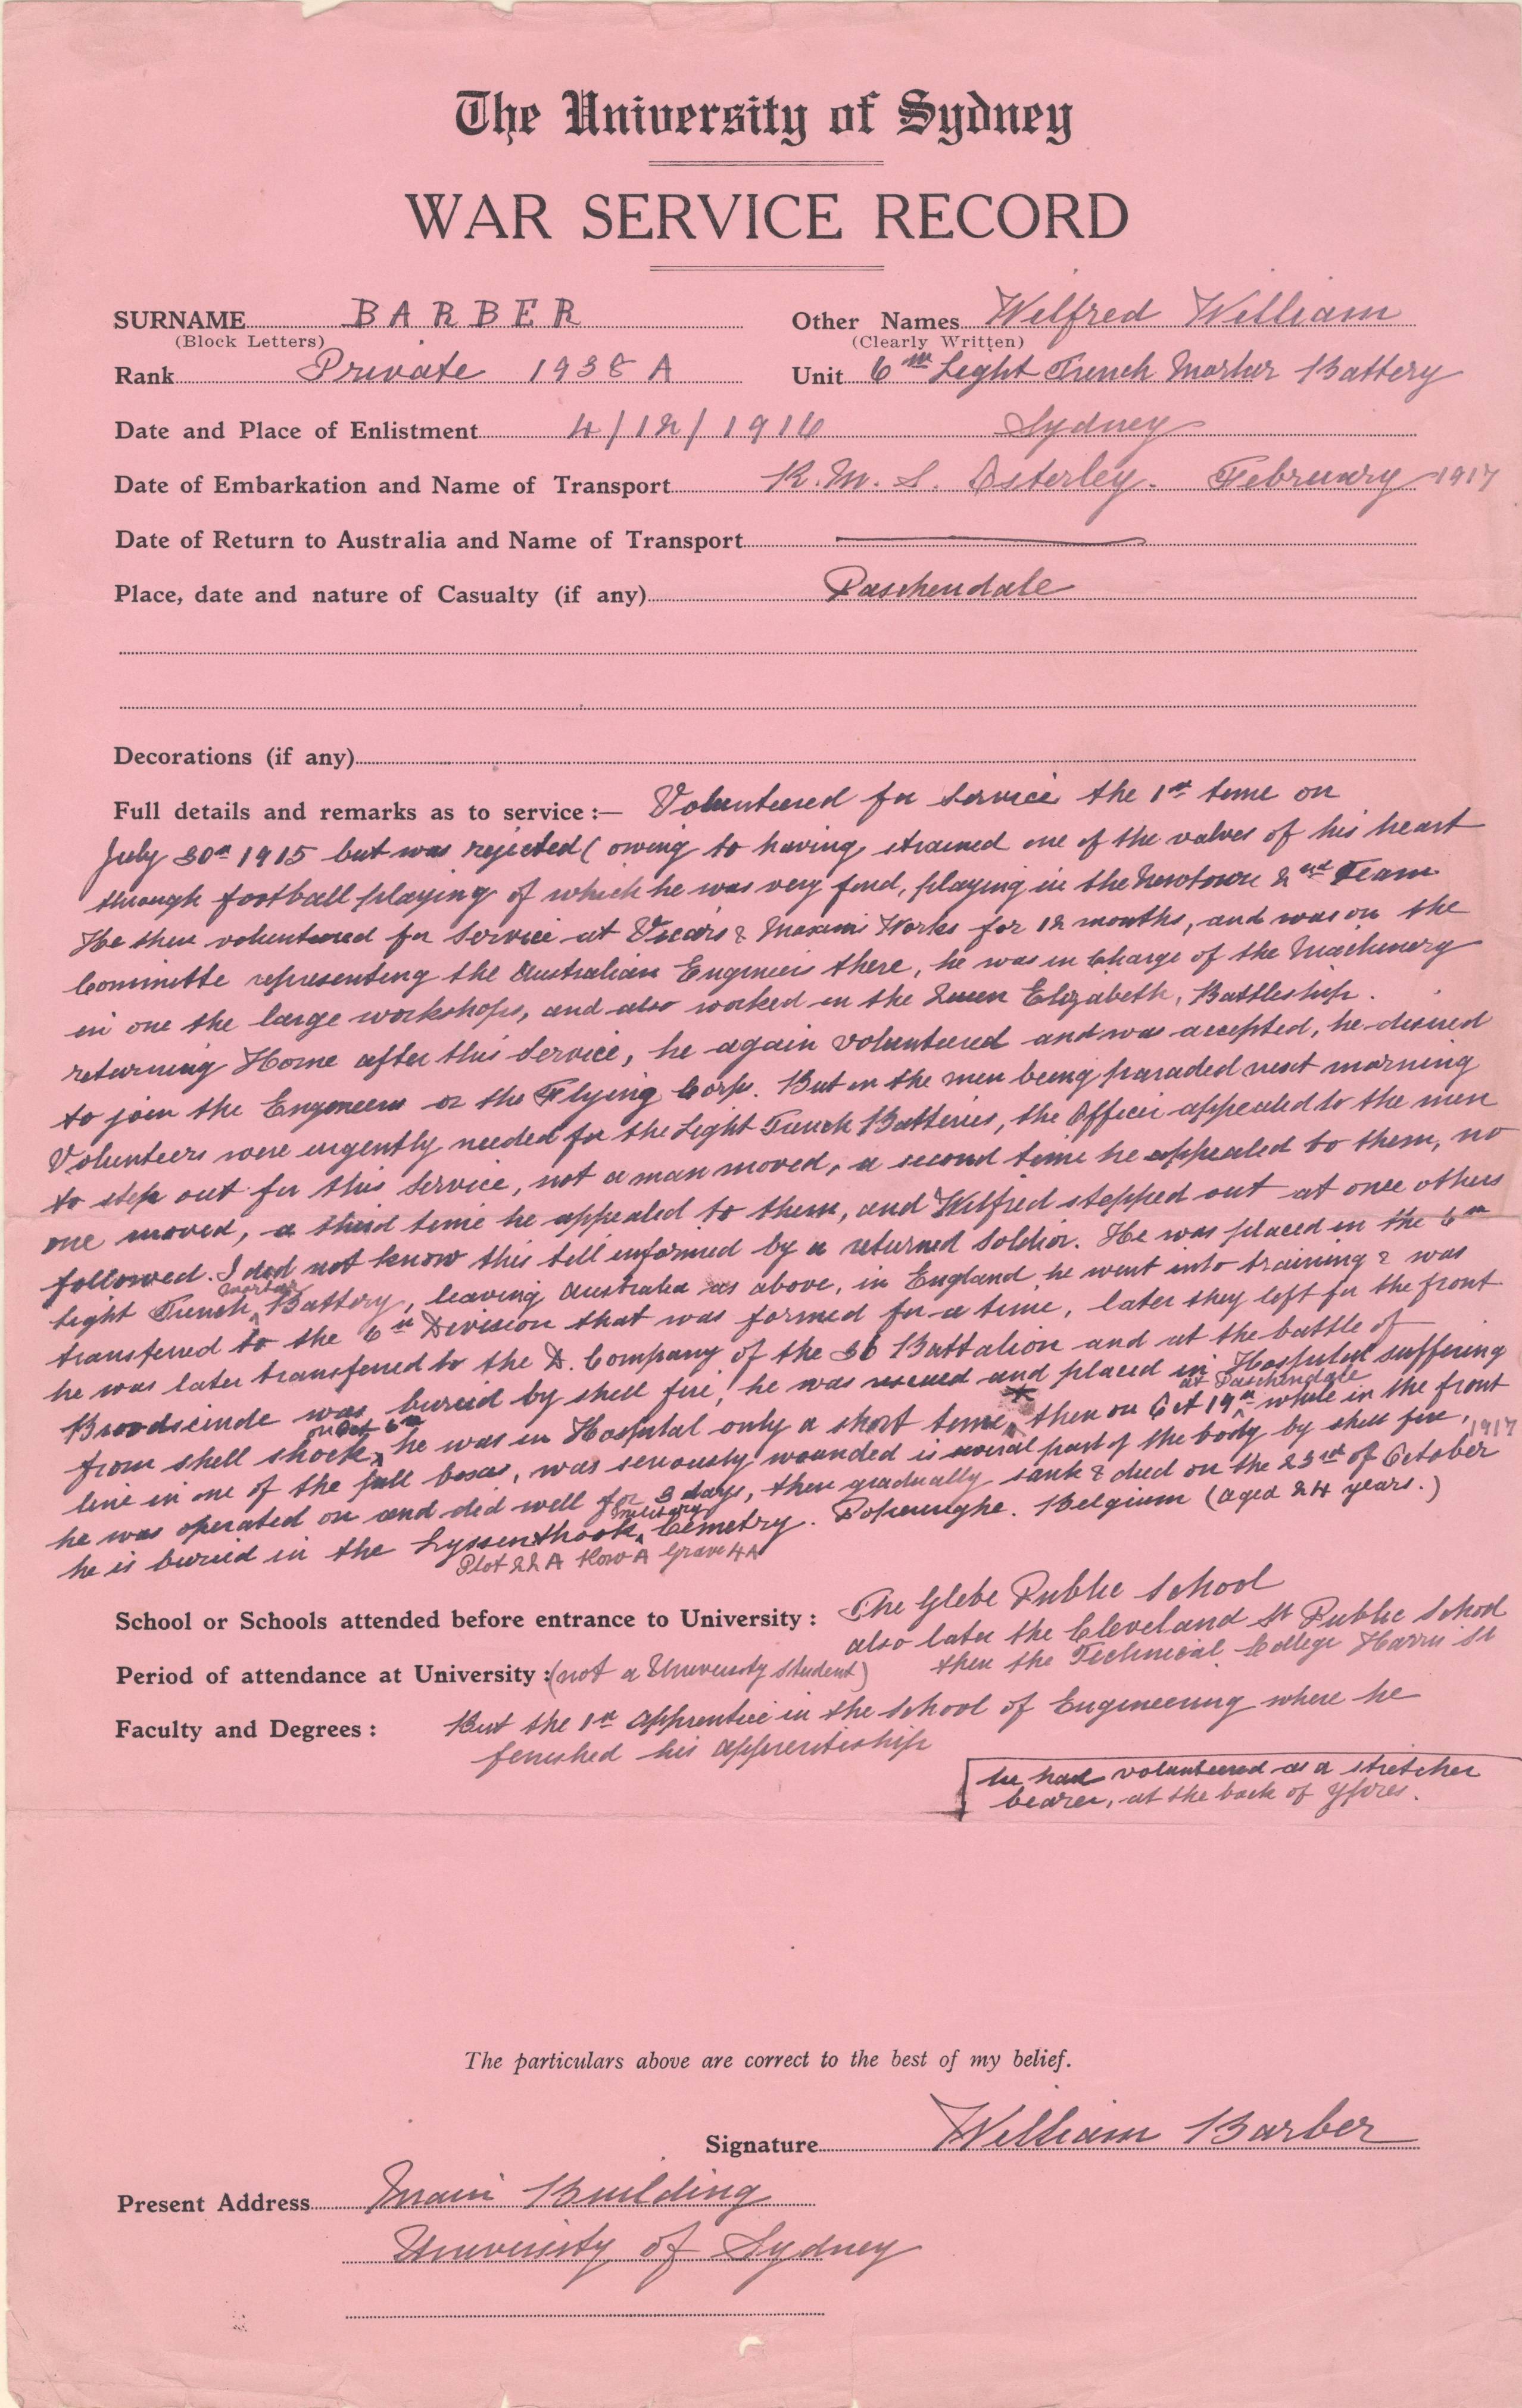 The University of Sydney
WAR SERVICE RECORD
SURNAME BARBER Other Names Wilfred William
(Block Letters) (Clearly Written)
Rank Private 1938 A Unit 6th Light Trench Mortar Battery
Date and Place of Enlistment 4/12/1916 Sydney
Date of Embarkation and Name of Transport R.M.S. Osterley. February 1917
Date of Return to Australia and Name of Transport
Place, date and nature of Casualty (if any) Paschendale
Decorations (if any)
Full details and remarks as to service:— Volunteered for service the 1st time on
July 30th 1915 but was rejected (owing to having strained one of the valves of his heart
through football playing of which he was very fond, playing in the Newtown 2nd Team
He then volunteered for Service at Vicars & Maxims Works for 12 months, and was on the
Committe representing the Australian Engineers there, he was in Charge of the Machinery
in one the large workshops, and also worked in the Queen Elizabeth, Battleship.
returning Home after this Service, he again volunteered and was accepted, he desired
to join the Engineers or the Flying Corp. But on the men being paraded next morning
Volunteers were urgently needed for the Light Trench Batteries, the Officer appealed to the men
to step out for this Service, not a man moved, a second time he appealed to them, no
one moved, a third time he appealed to them, and Wilfred stepped out at once others
followed. I did not know this till informed by a returned Soldier. He was placed in the 6th
Light Trench Mortar Battery, leaving Australia as above, in England he went into training & was
transferred to the 6th Division that was formed for a time, later they left for the front
he was later transferred to the D. Company of the 36 Battalion and at the battle of
Broodscinde was buried by shell fire, he was rescued and placed in Hospital suffering
from shell shock on Oct 6th, he was in Hospital only a short time * then on Oct 19th at Paschendale while in the front
line in one of the pill boxes, was seriously wounded is several part of the body by shell fire, 1917
he was operated on and did well for 3 days, then gradually sank & died on the 23rd of October
he is buried in the Lyssenthook Military Cemetry. Poperinghe. Belgium (aged 24 years.)
Plot 22A Row A Grave 4A
School or Schools attended before entrance to University: The Glebe Public School
also later the Cleveland St Public School
then the Technical College Harris St
Period of attendance at University: (not a University Student)
Faculty and Degrees: But the 1st apprentice in the School of Engineering where he
finished his apprentiship
he had volunteered as a stretcher
bearer, at the back of Ypres.
The particulars above are correct to the best of my belief.
Signature William Barber
Present Address Main Building
University of Sydney